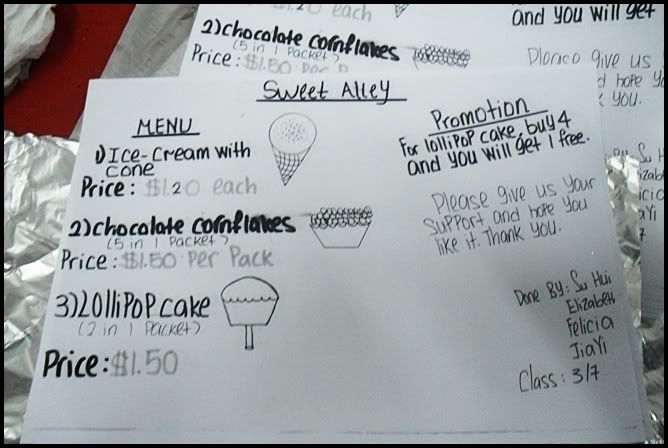 $1.20 each
2) chocolate cornflakes
(5 in 1 Packet)
Price: $1.50 Per P
and you will get
give us
d hope yo
k you.
Sweet Alley
MENU
1) Ice-Cream with
cone
Price: $1.20 each
2) chocolate cornflakes
(5 in 1 Packet)
Price: $1.50 Per Pack
3) LOlliPoP cake
(2 in 1 Packet)
Price: $1.50
Promotion
For lolliPoP cake, buy 4
and you will get 1 free.
Please give us your
support and hope you
like it. Thank you.
Done By: Su Hui
Elizabeth
Felicia
JiaYi
Class: 3/7